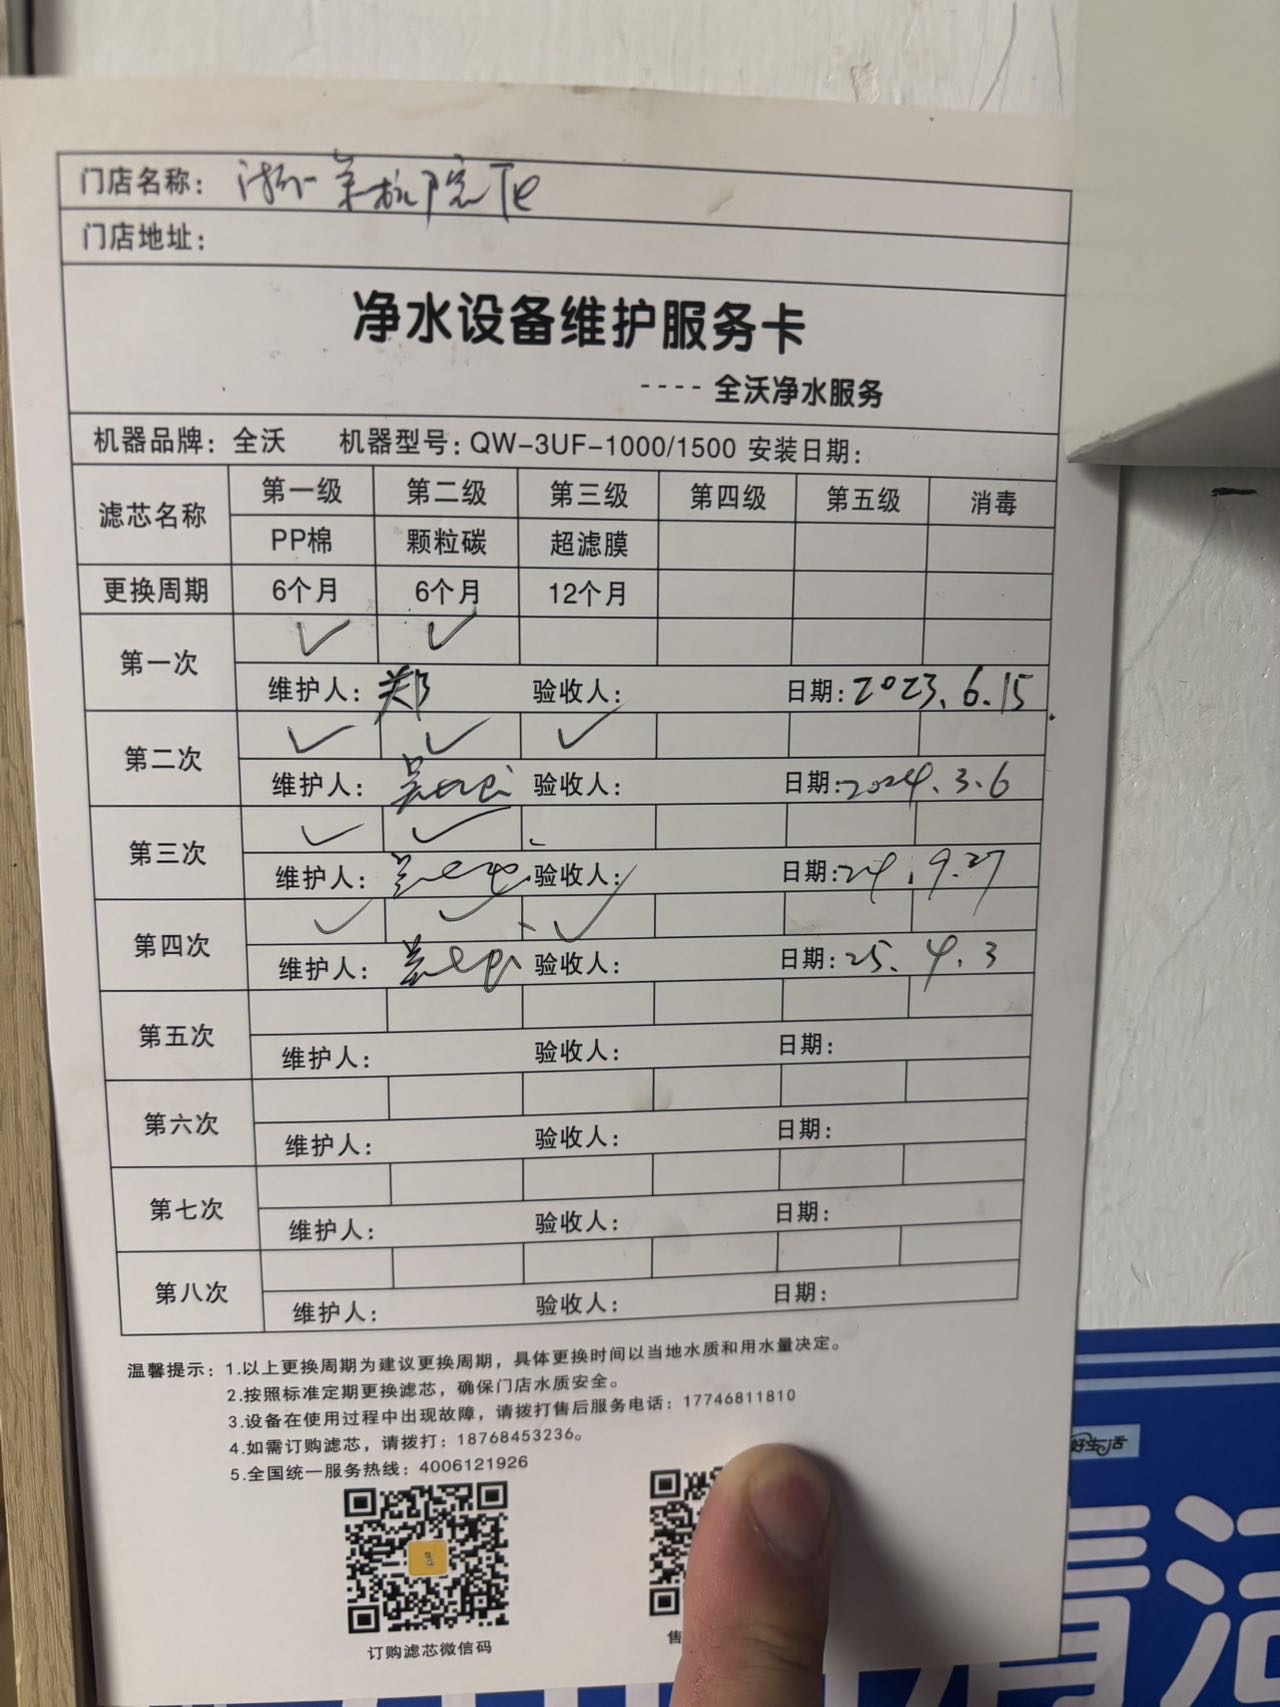 门店名称：
门店地址：
净水设备维护服务卡
---- 全沃净水服务
机器品牌：全沃 机器型号：QW-3UF-1000/1500 安装日期：
滤芯名称 第一级 第二级 第三级 第四级 第五级 消毒
PP棉 颗粒碳 超滤膜
更换周期 6个月 6个月 12个月
第一次 ✓ ✓
维护人：郑 验收人： 日期：2023.6.15
第二次 ✓ ✓ ✓
维护人： 验收人： 日期：2024.3.6
第三次 ✓ ✓
维护人： 验收人： 日期：24.9.27
第四次 ✓ ✓ ✓
维护人： 验收人： 日期：25.4.3
第五次
维护人： 验收人： 日期：
第六次
维护人： 验收人： 日期：
第七次
维护人： 验收人： 日期：
第八次
维护人： 验收人： 日期：
温馨提示：1.以上更换周期为建议更换周期，具体更换时间以当地水质和用水量决定。
2.按照标准定期更换滤芯，确保门店水质安全。
3.设备在使用过程中出现故障，请拨打售后服务电话：17746811810
4.如需订购滤芯，请拨打：18768453236。
5.全国统一服务热线：4006121926
订购滤芯微信码
售
好生活
清洁